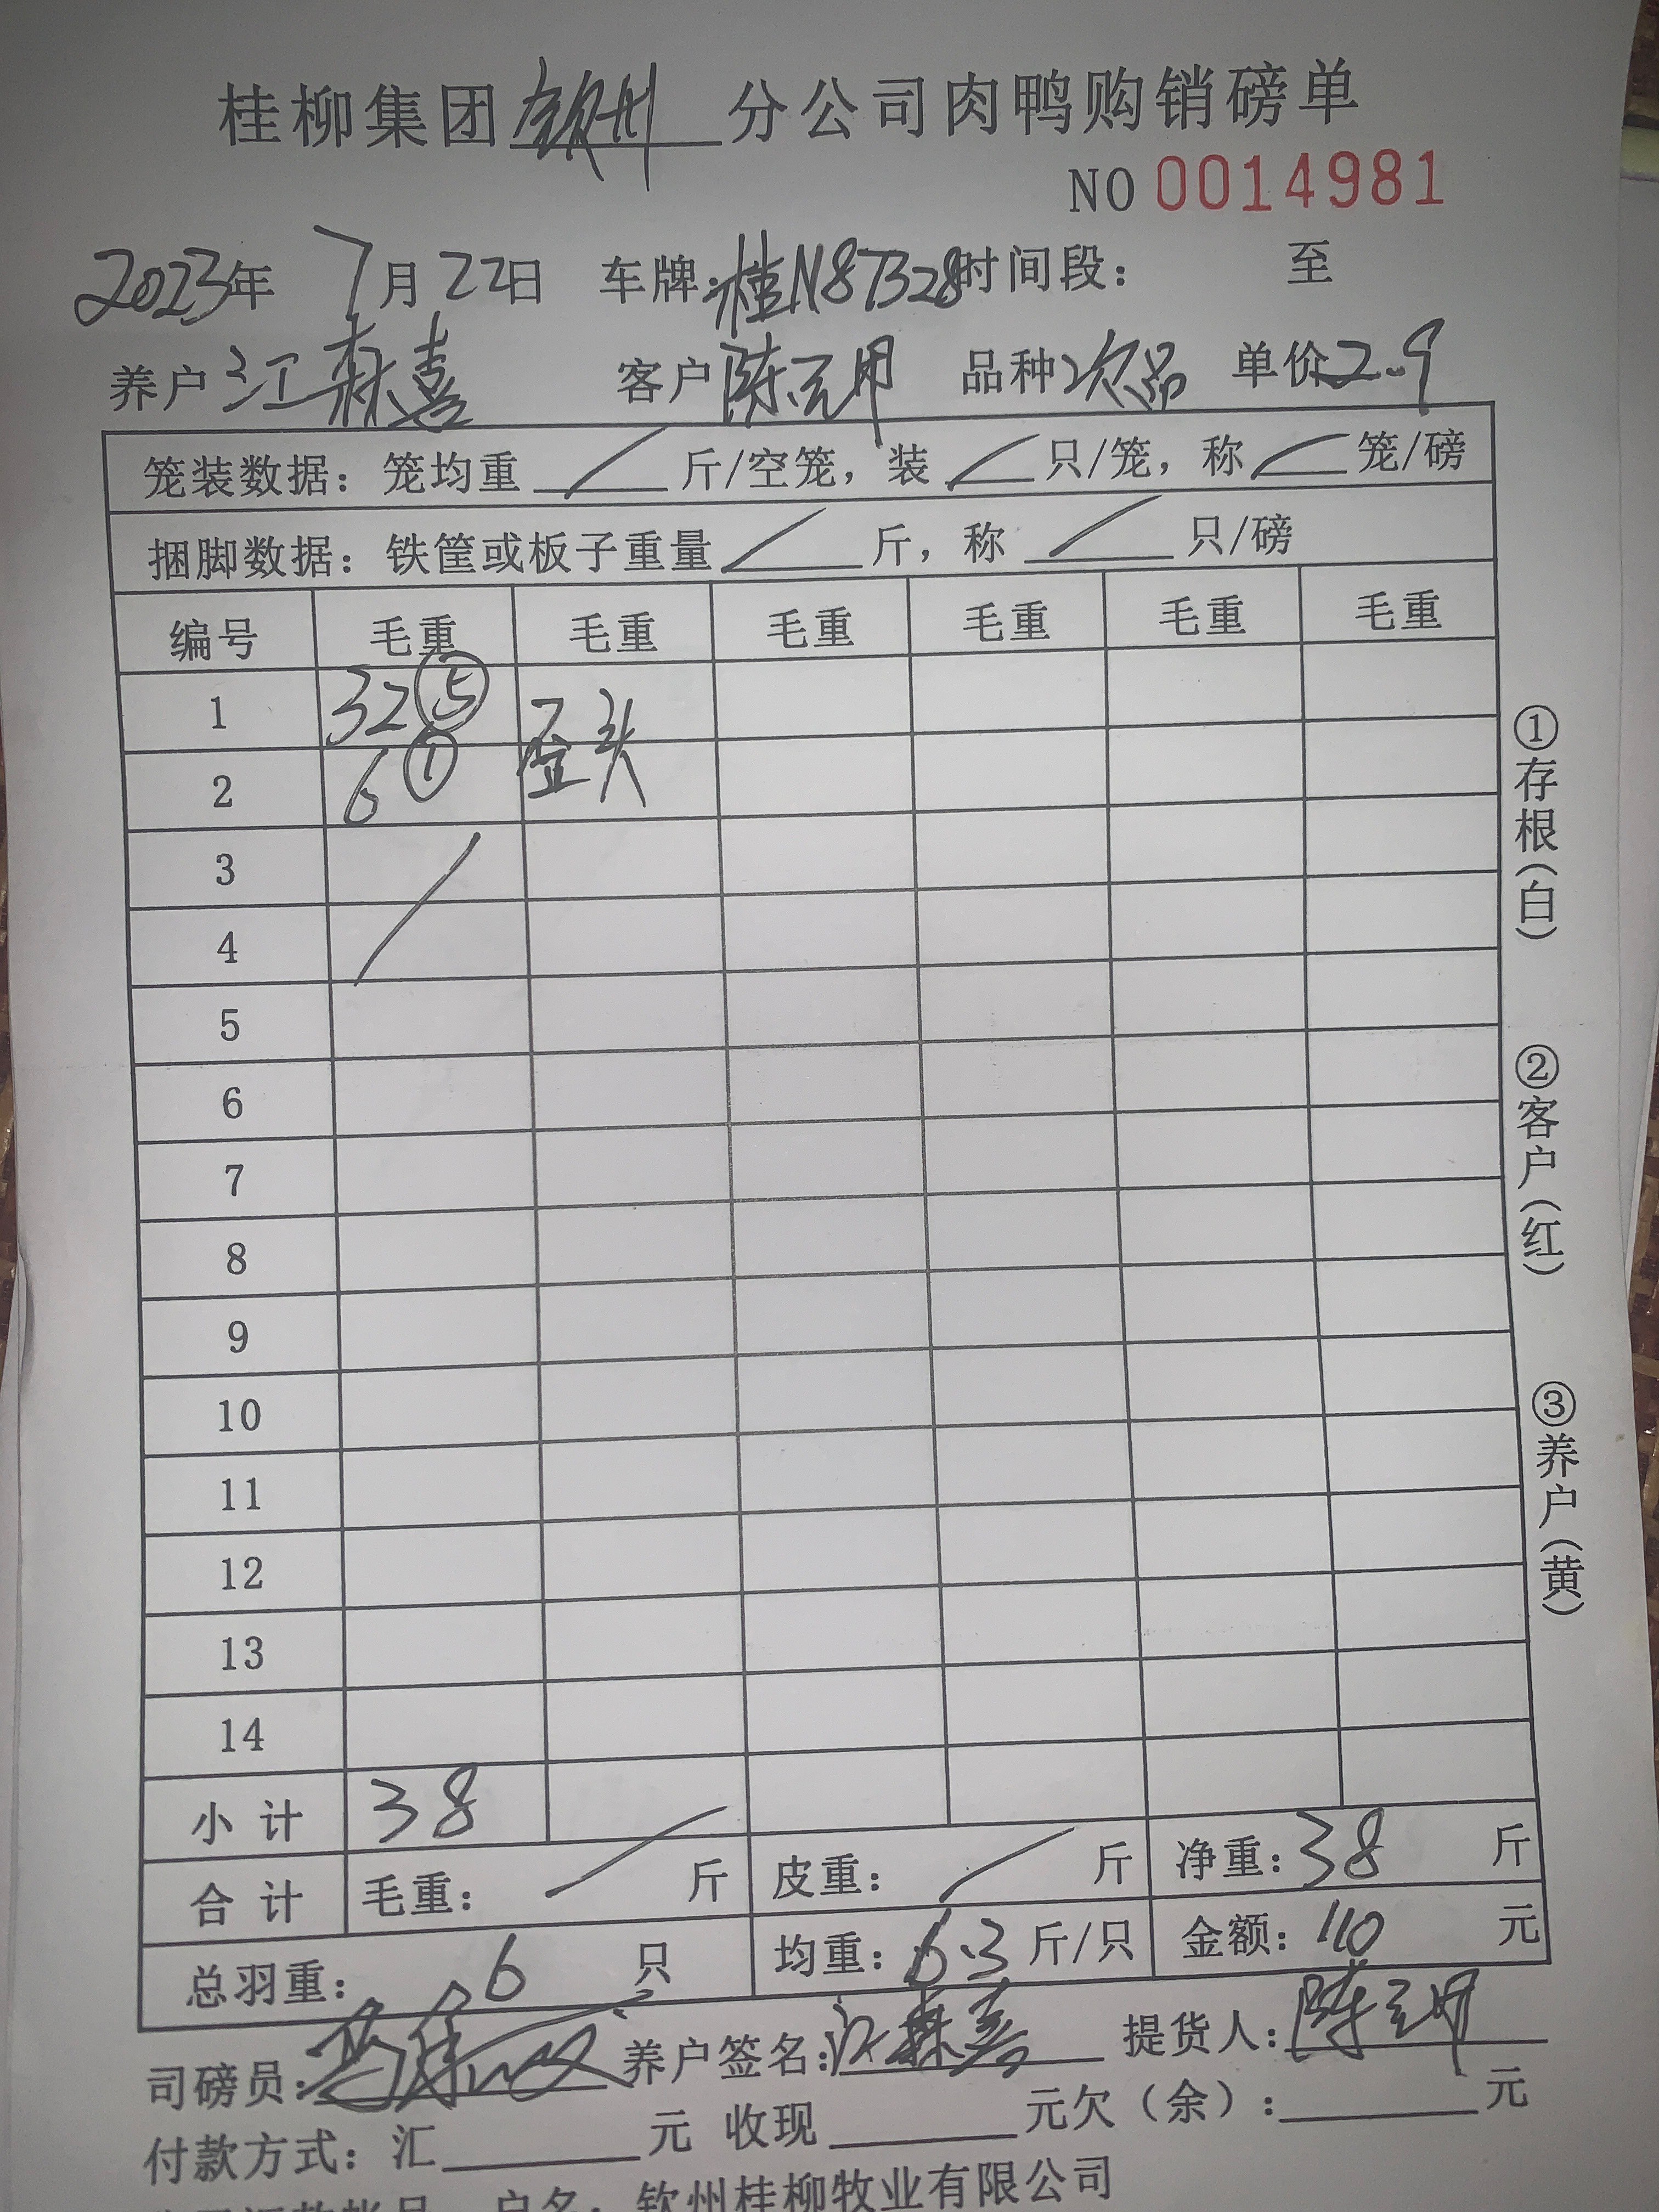 桂柳集团钦州分公司肉鸭购销磅单
NO 0014981
2023年 7月22日 车牌:桂N87328时间段: 至
养户江森喜 客户陈元甲 品种次品 单价2.9
笼装数据:笼均重 / 斤/空笼,装 / 只/笼,称 / 笼/磅
捆脚数据:铁筐或板子重量 / 斤,称 / 只/磅
编号 毛重 毛重 毛重 毛重 毛重 毛重
1 32⑤ 歪头
2 6①
3 /
4
5
6
7
8
9
10
11
12
13
14
小计 38
合计 毛重: / 斤 皮重: / 斤 净重:38 斤
总羽重: 6 只 均重:6.3斤/只 金额:110 元
司磅员: 养户签名:江森喜 提货人:陈元甲
付款方式:汇 元 收现 元欠(余): 元
户名:钦州桂柳牧业有限公司
①存根(白)
②客户(红)
③养户(黄)